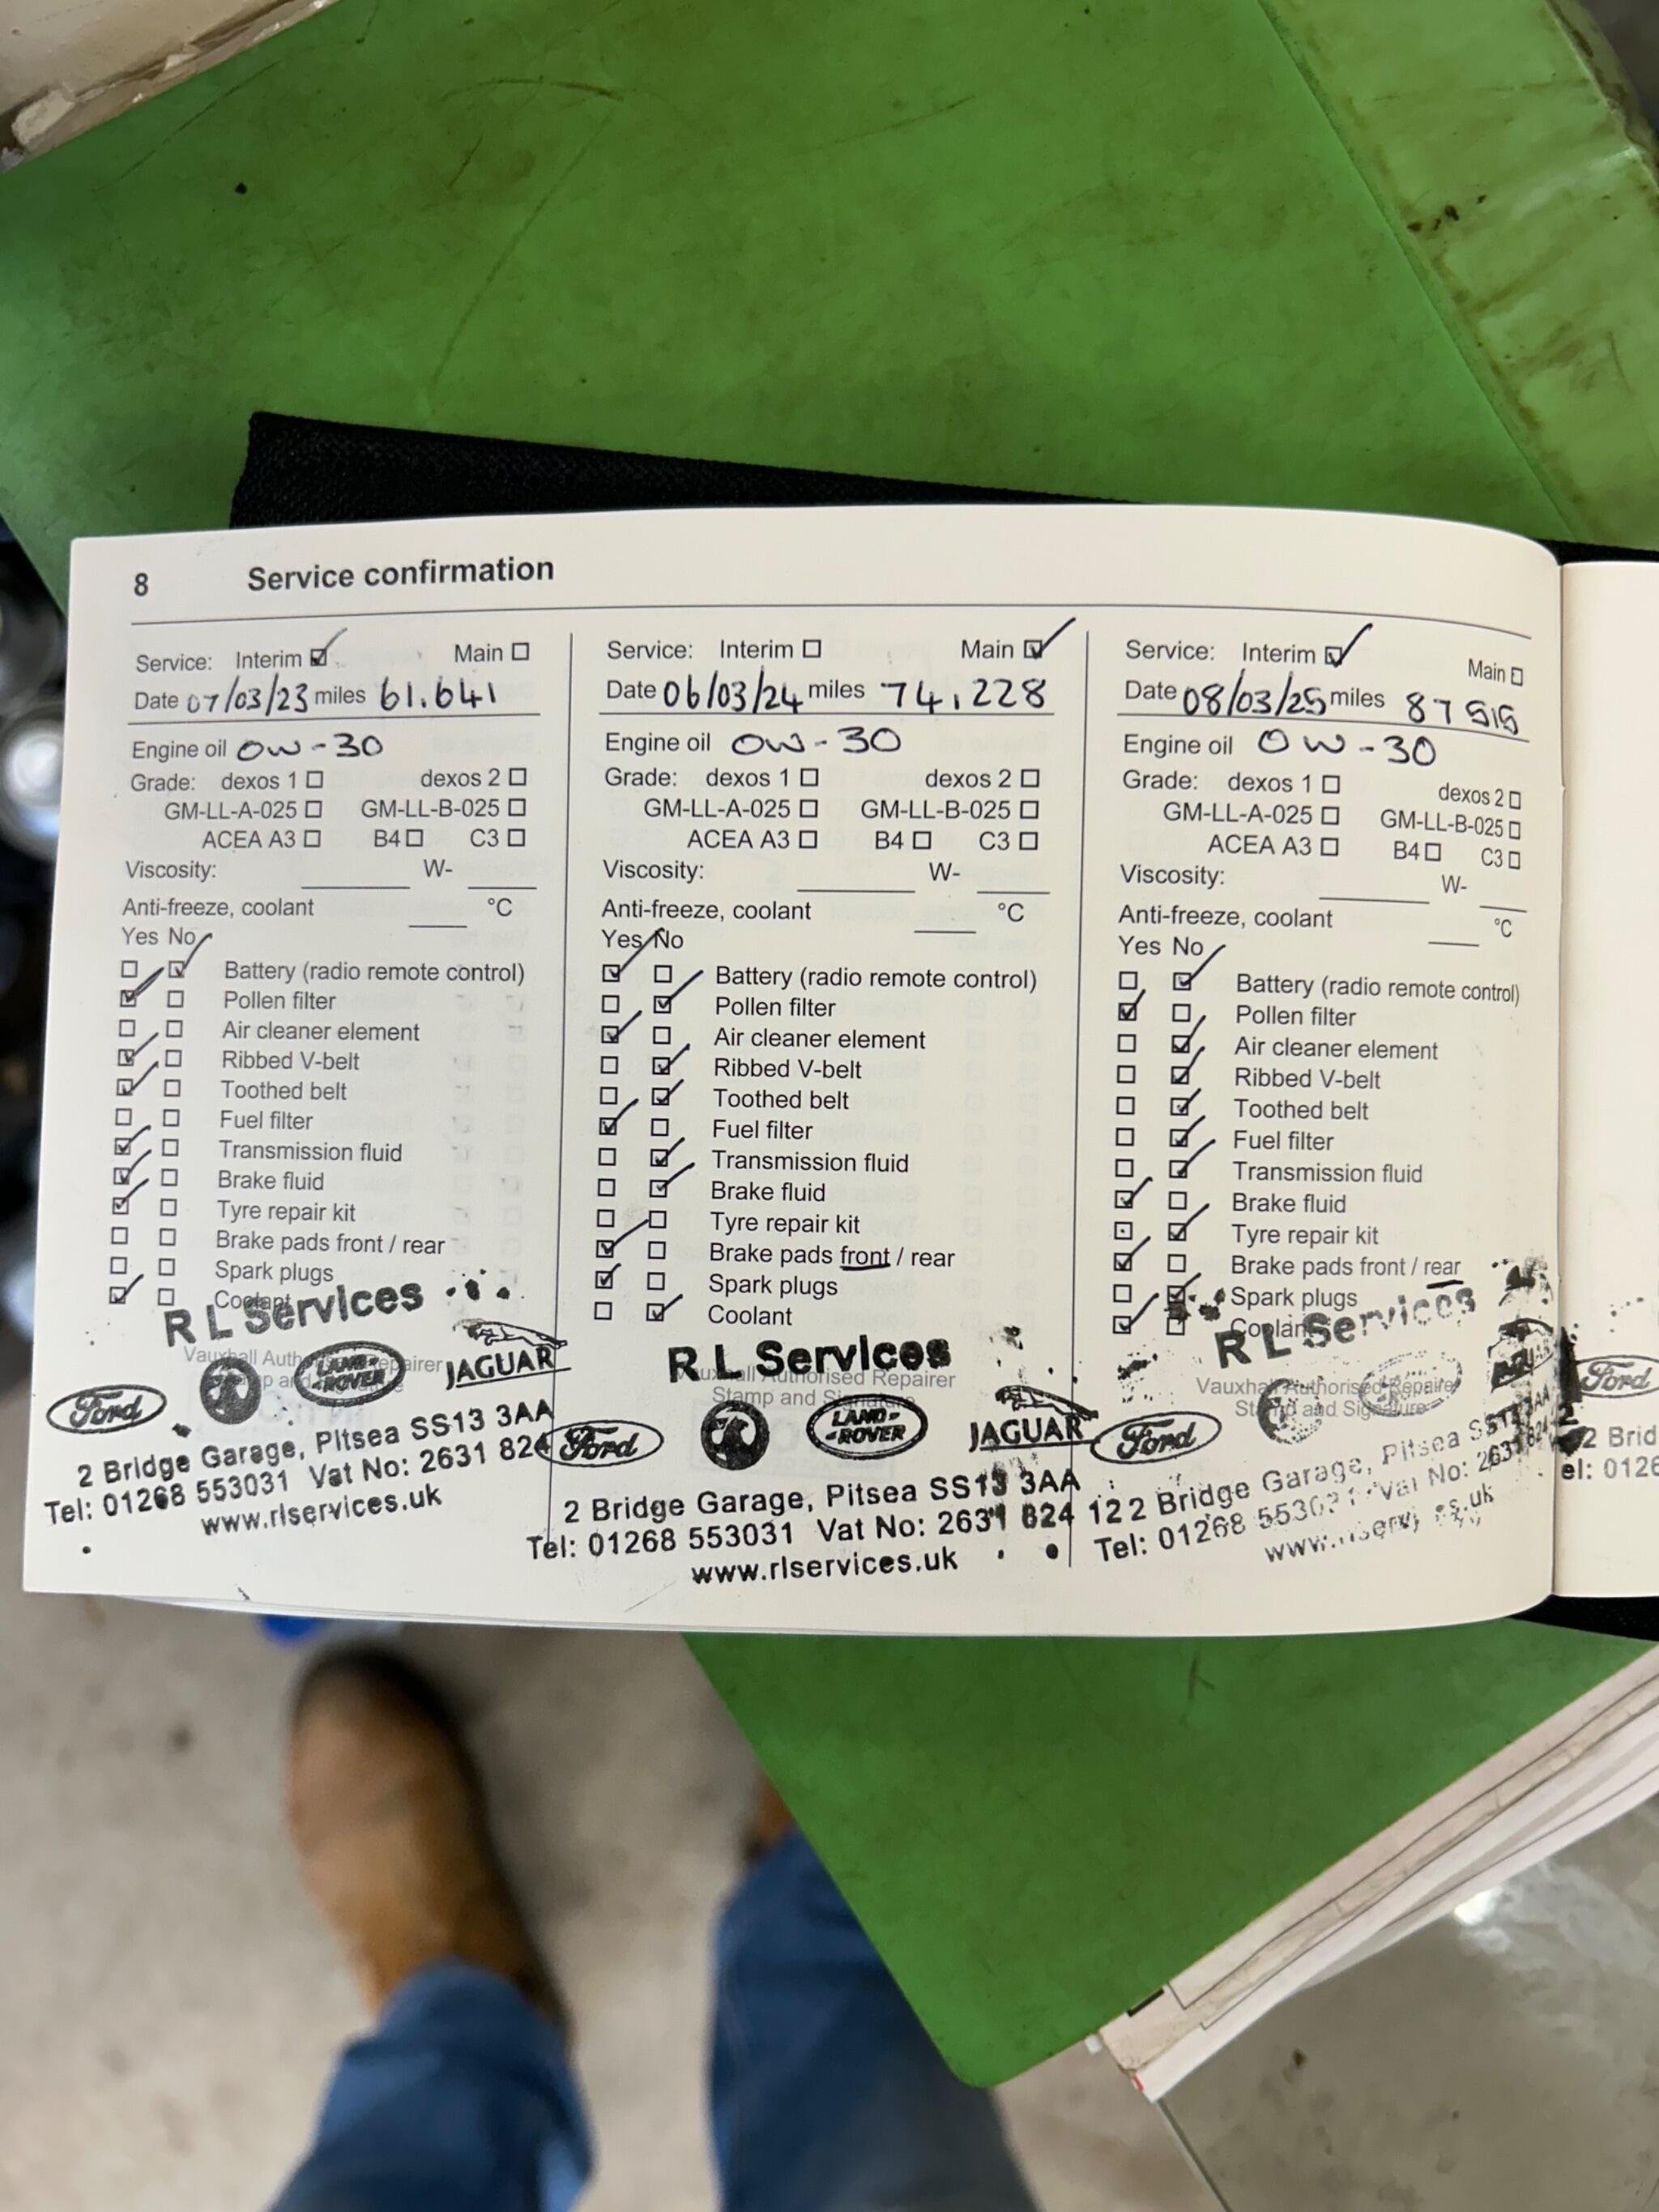 8 Service confirmation
Service: Interim ☑ Main ☐
Date 07/03/23 miles 61.641
Engine oil 0W-30
Grade: dexos 1 ☐ dexos 2 ☐
GM-LL-A-025 ☐ GM-LL-B-025 ☐
ACEA A3 ☐ B4 ☐ C3 ☐
Viscosity: W-
Anti-freeze, coolant °C
Yes No
☐ ☑ Battery (radio remote control)
☑ ☐ Pollen filter
☐ ☐ Air cleaner element
☑ ☐ Ribbed V-belt
☑ ☐ Toothed belt
☐ ☐ Fuel filter
☑ ☐ Transmission fluid
☑ ☐ Brake fluid
☑ ☐ Tyre repair kit
☐ ☐ Brake pads front / rear
☐ ☐ Spark plugs
☑ ☐ Coolant
R L Services
Ford LAND-ROVER JAGUAR
2 Bridge Garage, Pitsea SS13 3AA
Tel: 01268 553031 Vat No: 2631 824
www.rlservices.uk
Service: Interim ☐ Main ☑
Date 06/03/24 miles 74,228
Engine oil 0W-30
Grade: dexos 1 ☐ dexos 2 ☐
GM-LL-A-025 ☐ GM-LL-B-025 ☐
ACEA A3 ☐ B4 ☐ C3 ☐
Viscosity: W-
Anti-freeze, coolant °C
Yes No
☑ ☐ Battery (radio remote control)
☐ ☑ Pollen filter
☑ ☐ Air cleaner element
☐ ☑ Ribbed V-belt
☐ ☑ Toothed belt
☑ ☐ Fuel filter
☐ ☑ Transmission fluid
☐ ☑ Brake fluid
☐ ☐ Tyre repair kit
☑ ☐ Brake pads front / rear
☑ ☐ Spark plugs
☐ ☑ Coolant
R L Services
Vauxhall Authorised Repairer
Stamp and Signature
Ford LAND-ROVER JAGUAR
2 Bridge Garage, Pitsea SS13 3AA
Tel: 01268 553031 Vat No: 2631 824 12
www.rlservices.uk
Service: Interim ☑ Main ☐
Date 08/03/25 miles 87515
Engine oil 0W-30
Grade: dexos 1 ☐ dexos 2 ☐
GM-LL-A-025 ☐ GM-LL-B-025 ☐
ACEA A3 ☐ B4 ☐ C3 ☐
Viscosity: W-
Anti-freeze, coolant °C
Yes No
☐ ☑ Battery (radio remote control)
☑ ☐ Pollen filter
☐ ☑ Air cleaner element
☐ ☑ Ribbed V-belt
☐ ☑ Toothed belt
☐ ☑ Fuel filter
☐ ☑ Transmission fluid
☑ ☐ Brake fluid
☐ ☑ Tyre repair kit
☑ ☐ Brake pads front / rear
☐ ☑ Spark plugs
☑ ☐ Coolant
R L Services
Vauxhall Authorised Repairer
Stamp and Signature
Ford
2 Bridge Garage, Pitsea
Tel: 01268 Vat No:
Ford
2 Brid
el: 0126